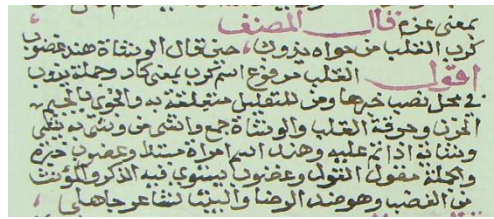 بمعنى عزم قال المصنف
كرب القلب من جواه يذوب، حتى قال الوشاة هند غضوب
اقول القلب مرفوع اسم كرب بمعنى كاد وجملة يذوب
في محل نصب خبرها ومن للتعليل متعلقة به والجوى بالجيم
الحزن وحرقة القلب والوشاة جمع واشى من وشى به يشى
وشاية اذا نم عليه وهند اسم امراة مبتدا وغضوب خبره
والجملة مقول القول وغضوب يستوى فيه الذكر والمؤنث
من الغضب وهو ضد الرضا والبيت لشاعر جاهلى